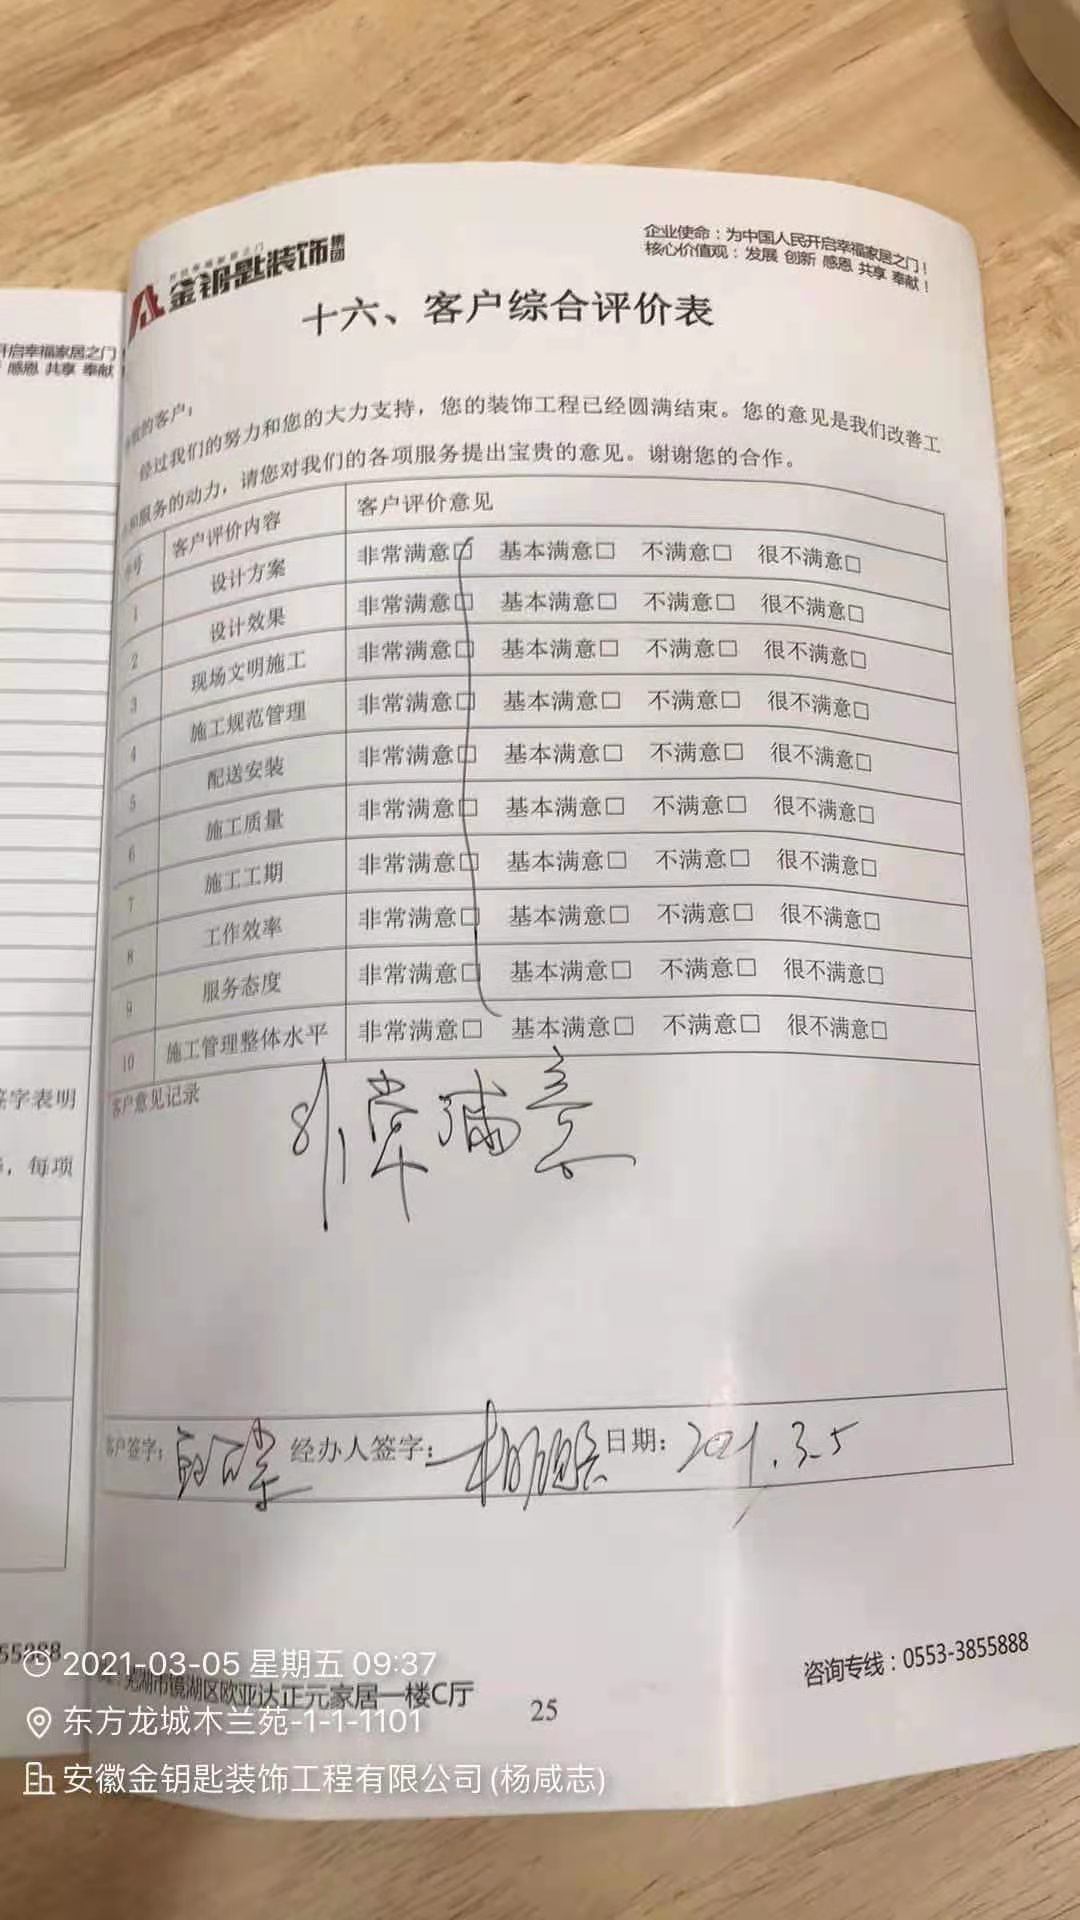 开启幸福家居之门
感恩 共享 奉献
签字表明
，每项
金钥匙装饰集团
企业使命：为中国人民开启幸福家居之门！
核心价值观：发展 创新 感恩 共享 奉献！
十六、客户综合评价表
的客户：
经过我们的努力和您的大力支持，您的装饰工程已经圆满结束。您的意见是我们改善工
和服务的动力，请您对我们的各项服务提出宝贵的意见。谢谢您的合作。
号 客户评价内容 客户评价意见
1 设计方案 非常满意□ 基本满意□ 不满意□ 很不满意□
2 设计效果 非常满意□ 基本满意□ 不满意□ 很不满意□
3 现场文明施工 非常满意□ 基本满意□ 不满意□ 很不满意□
4 施工规范管理 非常满意□ 基本满意□ 不满意□ 很不满意□
5 配送安装 非常满意□ 基本满意□ 不满意□ 很不满意□
6 施工质量 非常满意□ 基本满意□ 不满意□ 很不满意□
7 施工工期 非常满意□ 基本满意□ 不满意□ 很不满意□
8 工作效率 非常满意□ 基本满意□ 不满意□ 很不满意□
9 服务态度 非常满意□ 基本满意□ 不满意□ 很不满意□
10 施工管理整体水平 非常满意□ 基本满意□ 不满意□ 很不满意□
客户意见记录
非常满意
客户签字： 经办人签字： 日期：2021.3.5
55888
芜湖市镜湖区欧亚达正元家居一楼C厅
25
咨询专线：0553-3855888
2021-03-05 星期五 09:37
东方龙城木兰苑-1-1-1101
安徽金钥匙装饰工程有限公司(杨咸志)